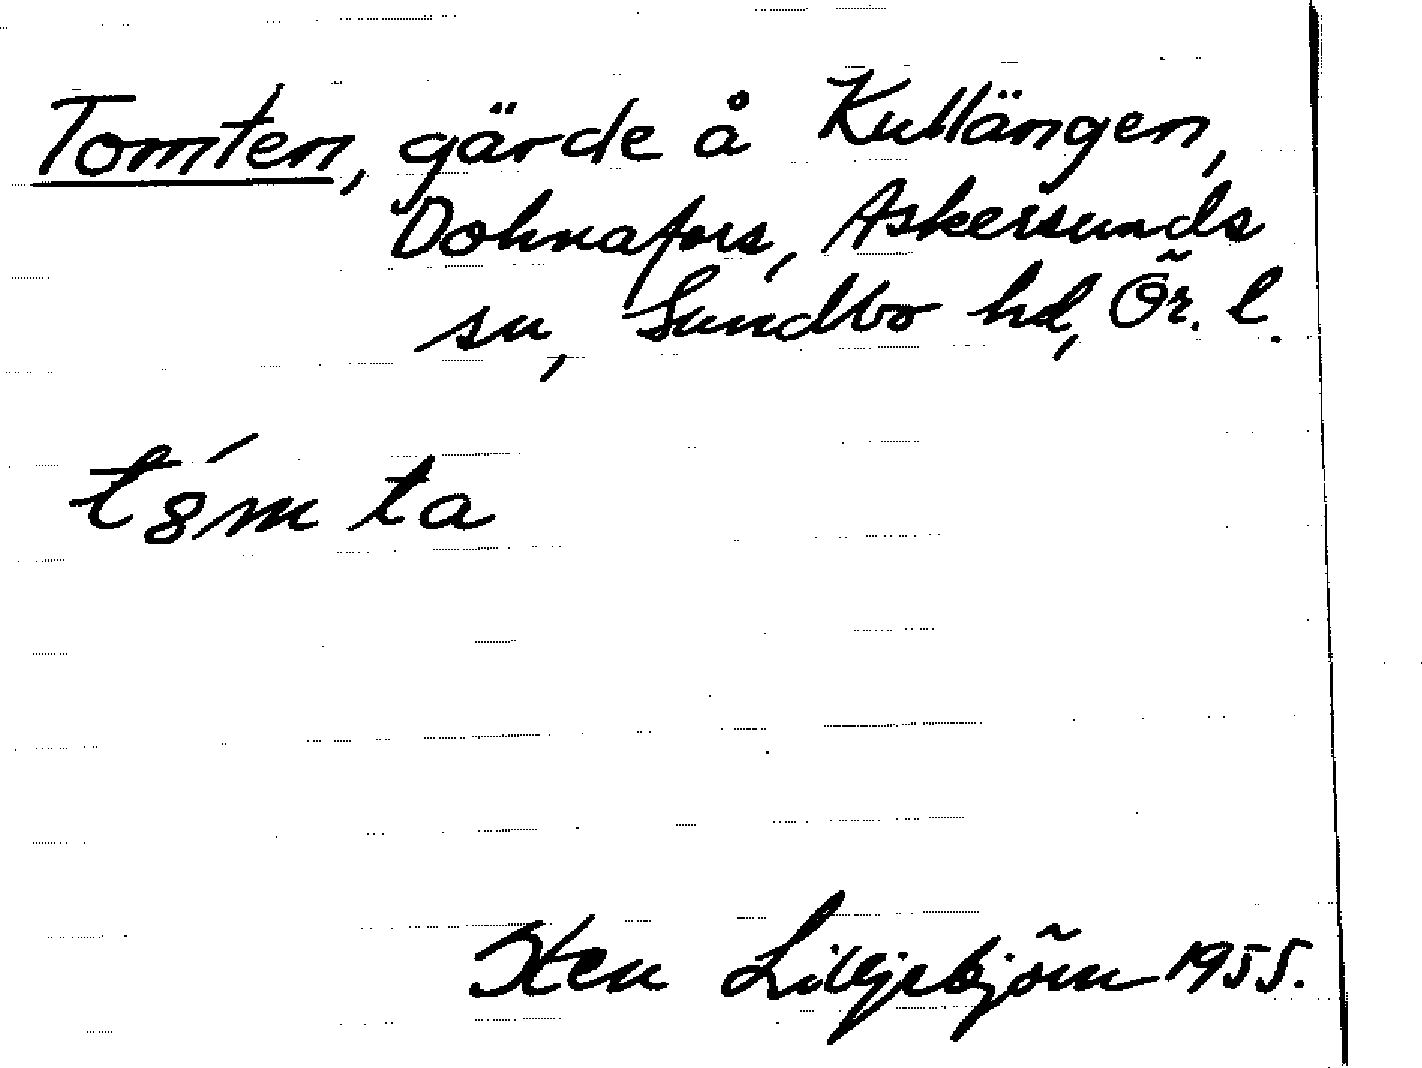 Tomten, gärde å Kullängen,
Dohnafors, Askersunds
sn, Sundbo hd, Ör. l.
t8́mta
Sten Lilljebjörn 1955.